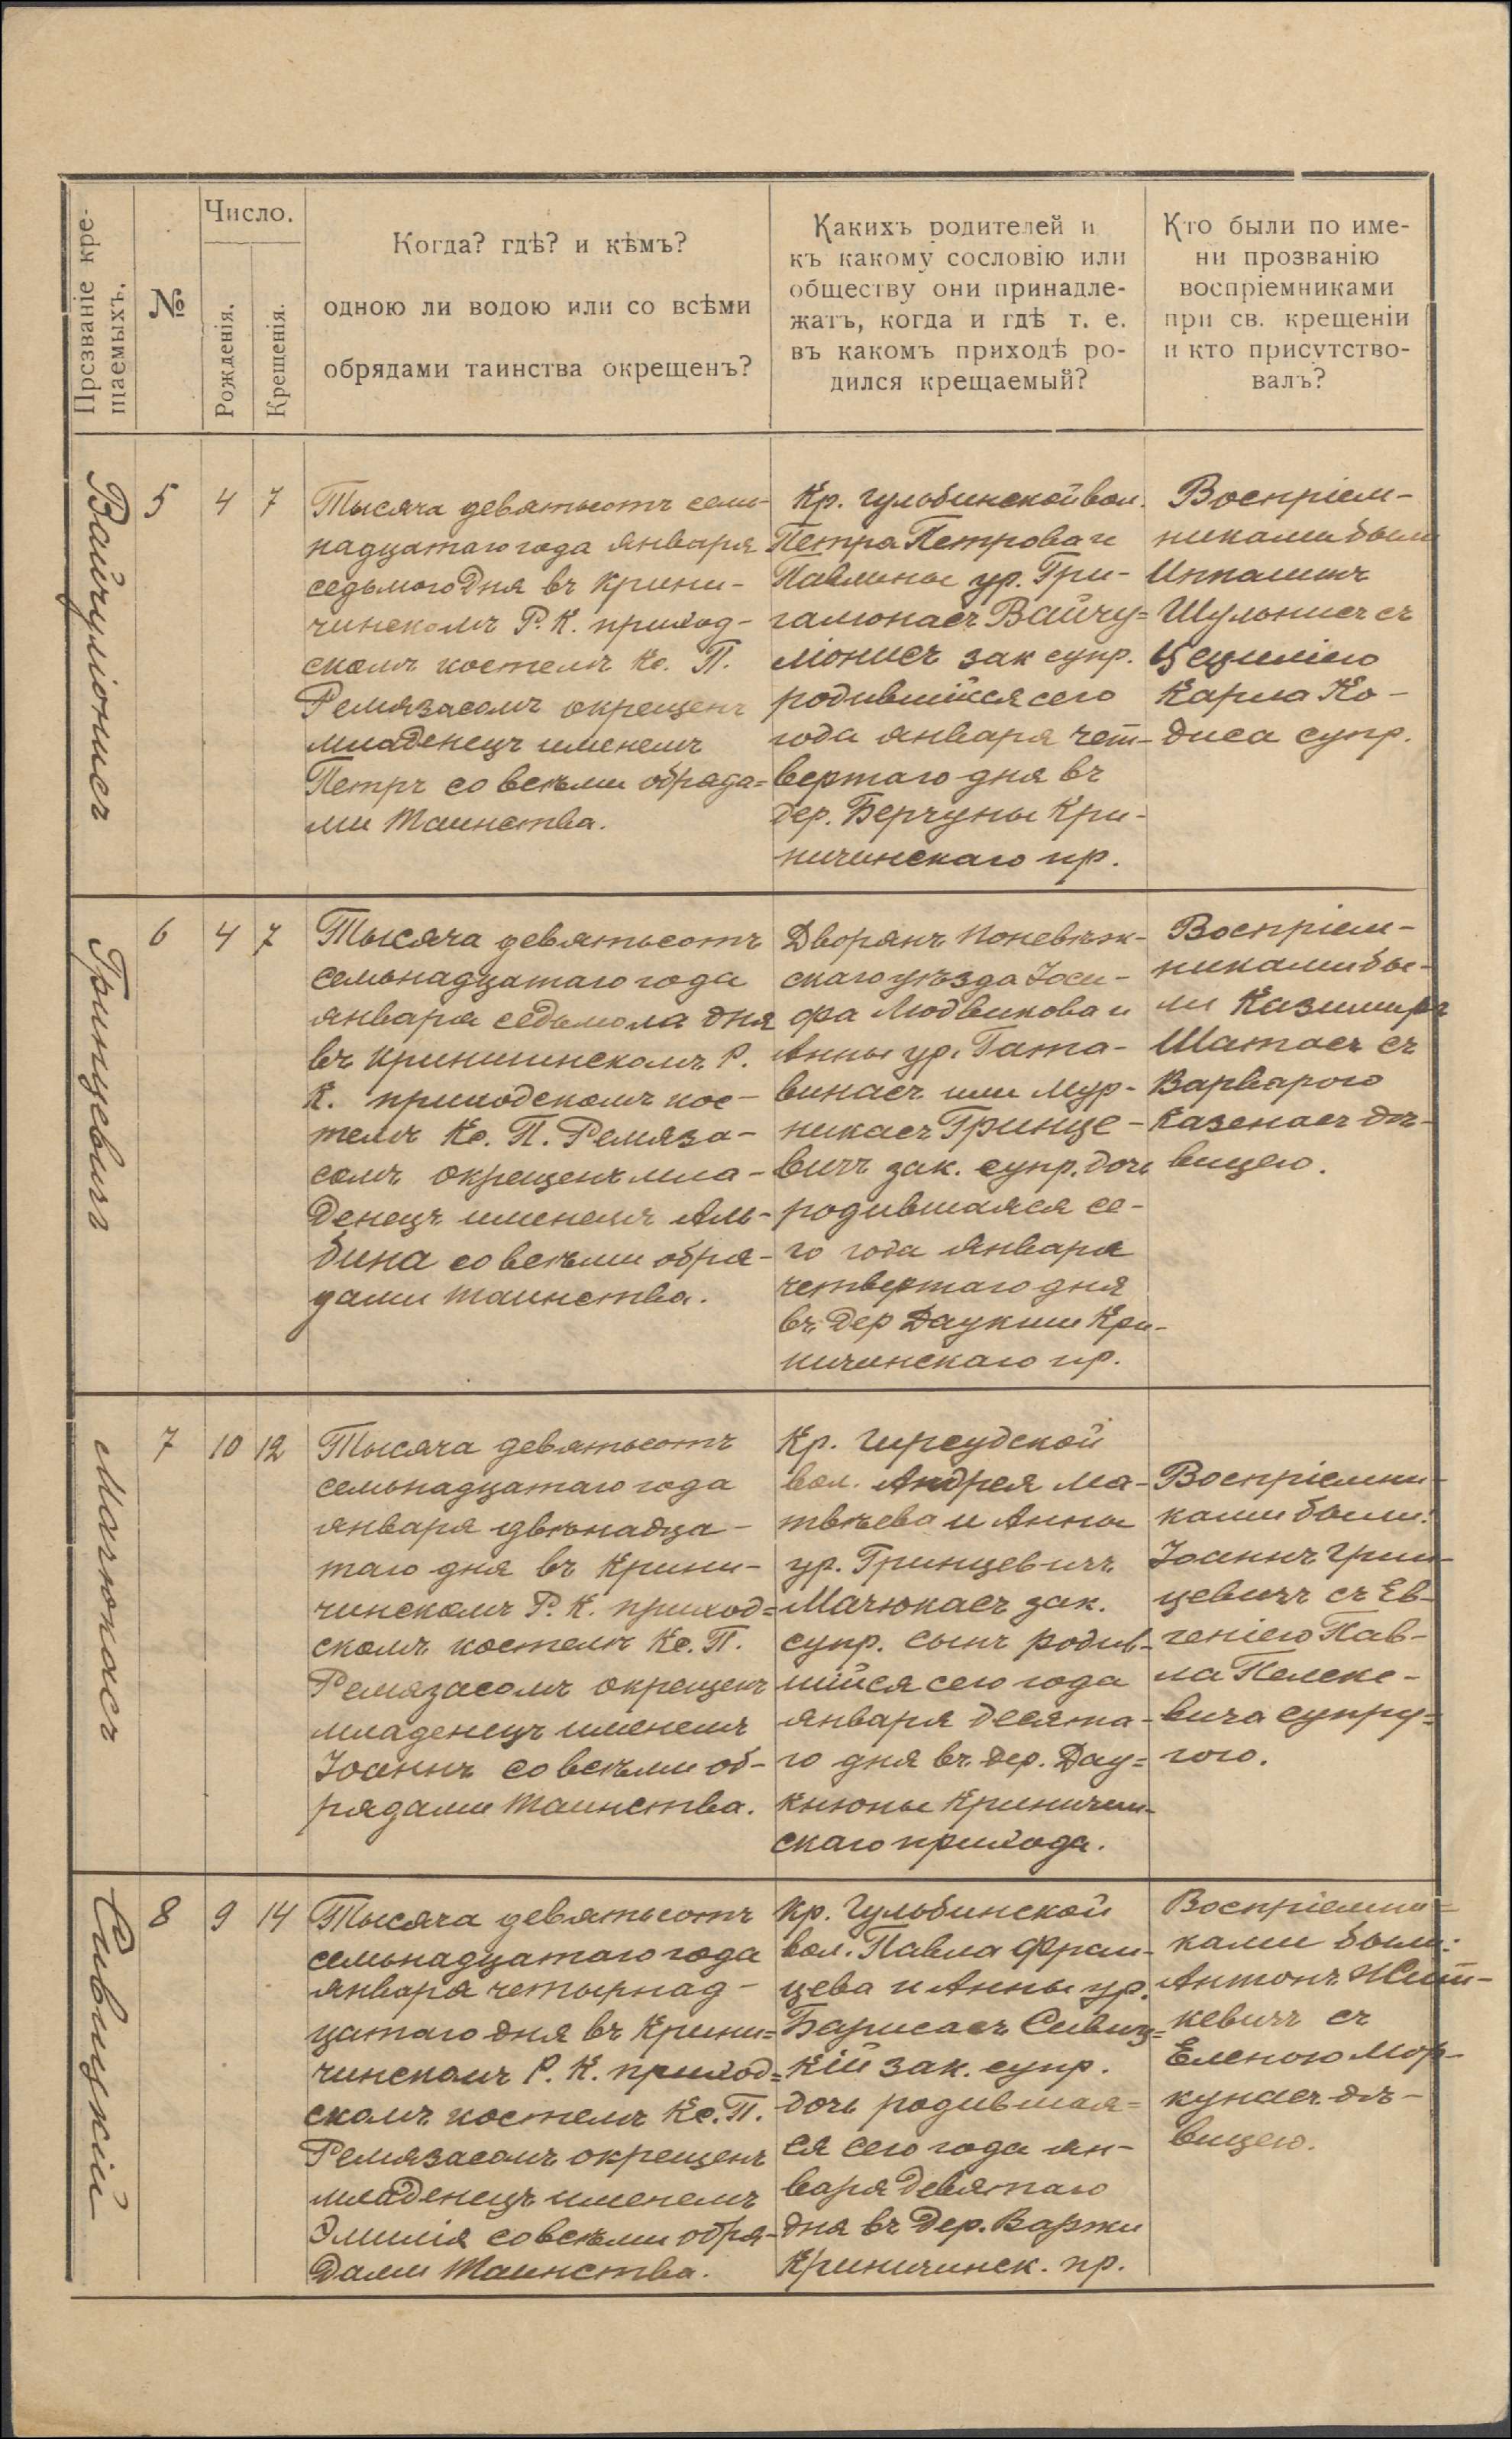 Прозваніе кре-
щаемыхъ.
№
Число.
Рожденія.
Крещенія.
Когда? гдѣ? и кѣмъ?
одною ли водою или со всѣми
обрядами таинства окрещенъ?
Какихъ родителей и
къ какому сословію или
обществу они принадле-
жатъ, когда и гдѣ т. е.
въ какомъ приходѣ ро-
дился крещаемый?
Кто были по име-
ни прозванію
воспріемниками
при св. крещеніи
и кто присутство-
валъ?
Вайчуліонисъ
5
4
7
Тысяча девятьсотъ семь-
надцатаго года января
седьмого дня въ Крини-
чинскомъ Р. К. приход-
скомъ костелѣ Кс. П.
Ремязасомъ окрещенъ
младенецъ именемъ
Петръ со всѣми обряда=
ми таинства.
Кр. Гульбинской вол.
Петра Петрова и
Павлины ур. Гри-
галюнасъ Вайчу=
ліонисъ зак супр.
родившійся сего
года января чет-
вертаго дня въ
дер. Берчуны Кри-
ничинскаго пр.
Воспріем-
никами были
Ипполитъ
Шульнисъ съ
Цециліею
Карла Ко-
диса супр.
Гринцевичъ
6
4
7
Тысяча девятьсотъ
семьнадцатаго года
января седьмола дня
въ Криничинскомъ Р.
К. приходскомъ кос-
телѣ Кс. П. Ремяза-
сомъ окрещенъ мла-
денецъ именемъ Аль-
бина со всѣми обря-
дами таинства.
Дворянъ Поневѣж-
скаго уѣзда Іоси-
фа Людвикова и
Анны ур. Гата-
винасъ или Мур-
никасъ Гринце-
вичъ зак. супр. дочь
родившаяся се-
го года января
четвертаго дня
въ дер Даукши Кри-
ничинскаго пр.
Воспріем-
никами бы-
ли Казимиръ
Шатасъ съ
Варварою
Казенасъ дѣ-
вицею.
Мачюкасъ
7
10
12
Тысяча девятьсотъ
семьнадцатаго года
января двѣнадца-
таго дня въ Крини-
чинскомъ Р. К. приход=
скомъ костелѣ Кс. П.
Ремязасомъ окрещенъ
младенецъ именемъ
Іоаннъ со всѣми об-
рядами таинства.
Кр. Гирсудской
вол. Андрея Ма-
твѣева и Анны
ур. Гринцевичъ
Мачюкасъ зак.
супр. сынъ родив-
шійся сего года
января десята-
го дня въ дер. Дау=
кнюны Криничин-
скаго прихода.
Воспріемни-
ками были:
Іоаннъ Грин-
цевичъ съ Ев-
геніею Пав-
ла Пелеке-
вича супру=
гою.
Сивицкій
8
9
14
Тысяча девятьсотъ
семьнадцатаго года
января четырнад-
цатаго дня въ Крини=
чинскомъ Р. К. приход=
скомъ костелѣ Кс. П.
Ремязасомъ окрещенъ
младенецъ именемъ
Эмилія со всѣми обря-
дами таинства.
Кр. Гульбинской
вол. Павла Фран-
цева и Анны ур.
Барисасъ Сивиц=
кій зак. супр.
дочь родившая=
ся сего года ян-
варя девятаго
дня въ дер. Варжи
Криничинск. пр.
Воспріемни=
ками были:
Антонъ Жит-
кевичъ съ
Еленою Мор-
кунасъ дѣ-
вицею.